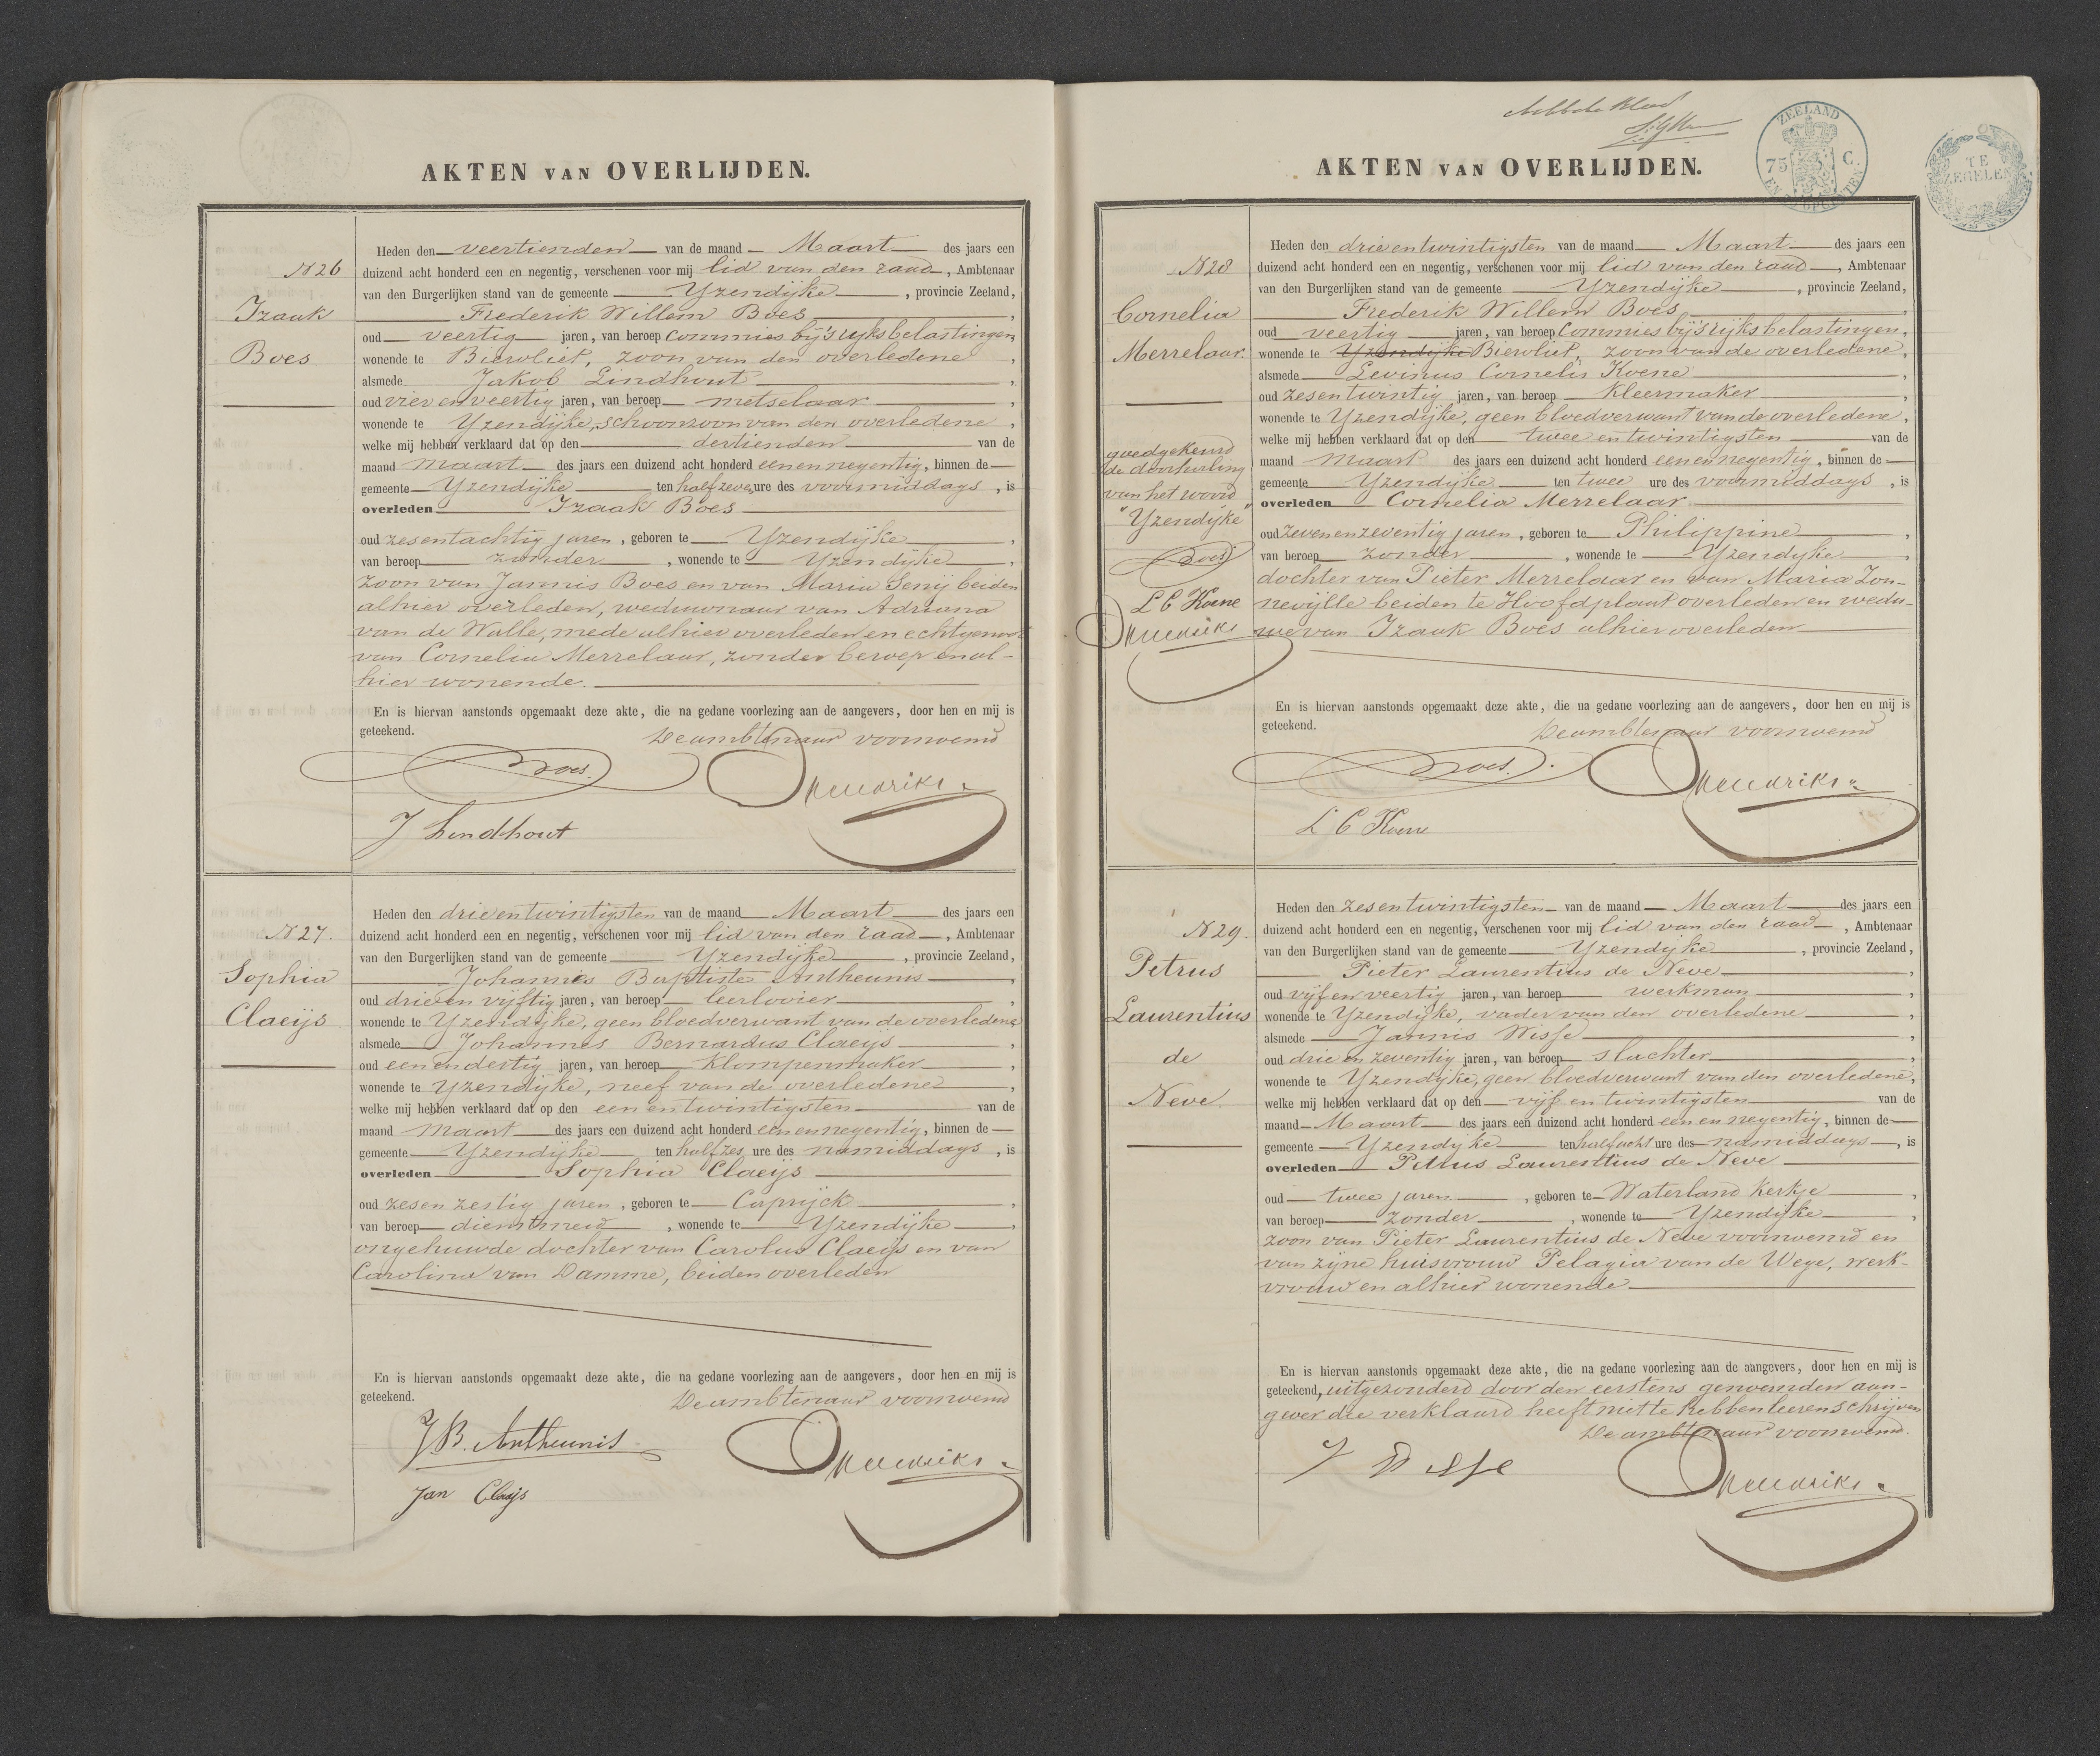 AKTEN VAN OVERLIJDEN.
N 26
Izaak
Boes
Heden den veertienden van de maand Maart des jaars een
duizend acht honderd een en negentig, verschenen voor mij lid van den raad, Ambtenaar
van den Burgerlijken stand van de gemeente Yzendijke, provincie Zeeland,
Frederik Willem Boes,
oud veertig jaren, van beroep commies bij 's rijks belastingen,
wonende te Biervliet, zoon van den overledene,
alsmede Jakob Lindhout,
oud vier en veertig jaren, van beroep metselaar,
wonende te Yzendijke, schoonzoon van den overledene,
welke mij hebben verklaard dat op den dertienden van de
maand Maart des jaars een duizend acht honderd een en negentig, binnen de
gemeente Yzendijke ten half zeven ure des voormiddags, is
overleden Izaak Boes
oud zesentachtig jaren, geboren te Yzendijke,
van beroep zonder, wonende te Yzendijke,
zoon van Jannis Boes en van Maria Senij beiden
alhier overleden, weduwnaar van Adriana
van de Walle, mede alhier overleden en echtgenoot
van Cornelia Merrelaar, zonder beroep en al-
hier wonende.
En is hiervan aanstonds opgemaakt deze akte, die na gedane voorlezing aan de aangevers, door hen en mij is
geteekend. De ambtenaar voornoemd
Boes.
Hendriks
J Lindhout
N 27.
Sophia
Claeijs
Heden den drieentwintigsten van de maand Maart des jaars een
duizend acht honderd een en negentig, verschenen voor mij lid van den raad, Ambtenaar
van den Burgerlijken stand van de gemeente Yzendijke, provincie Zeeland,
Johannes Baptiste Antheunis,
oud drie en vijftig jaren, van beroep leerlooier,
wonende te Yzendijke, geen bloedverwant van de overledene
alsmede Johannes Bernardus Claeijs,
oud een en dertig jaren, van beroep klompenmaker,
wonende te Yzendijke, neef van de overledene,
welke mij hebben verklaard dat op den een en twintigsten van de
maand Maart des jaars een duizend acht honderd een en negentig, binnen de
gemeente Yzendijke ten half zes ure des namiddags, is
overleden Sophia Claeijs
oud zesenzestig jaren, geboren te Caprijck,
van beroep dienstmeid, wonende te Yzendijke,
ongehuwde dochter van Carolus Claeijs en van
Carolina van Damme, beiden overleden
En is hiervan aanstonds opgemaakt deze akte, die na gedane voorlezing aan de aangevers, door hen en mij is
geteekend. De ambtenaar voornoemd
J.B. Antheunis
Hendriks
Jan Claijs
ZEELAND
75 C.
TE
ZEGELEN
AKTEN VAN OVERLIJDEN.
N 28
Cornelia
Merrelaar
goedgekeurd
de doorhaling
van het woord
"Yzendijke"
Boes
L C Koene
Hendriks
Heden den drieentwintigsten van de maand Maart des jaars een
duizend acht honderd een en negentig, verschenen voor mij lid van den raad, Ambtenaar
van den Burgerlijken stand van de gemeente Yzendijke, provincie Zeeland,
Frederik Willem Boes,
oud veertig jaren, van beroep commies bij 's rijks belastingen,
wonende te Yzendijke Biervliet, zoon van de overledene,
alsmede Levinus Cornelis Koene,
oud zesentwintig jaren, van beroep kleermaker,
wonende te Yzendijke, geen bloedverwant van de overledene,
welke mij hebben verklaard dat op den twee en twintigsten van de
maand Maart des jaars een duizend acht honderd een en negentig, binnen de
gemeente Yzendijke ten twee ure des voormiddags, is
overleden Cornelia Merrelaar
oud zevenenzeventig jaren, geboren te Philippine,
van beroep zonder, wonende te Yzendijke,
dochter van Pieter Merrelaar en van Maria Zon-
nevijlle beiden te Hoofdplaat overleden en wedu-
we van Izaak Boes alhier overleden
En is hiervan aanstonds opgemaakt deze akte, die na gedane voorlezing aan de aangevers, door hen en mij is
geteekend. De ambtenaar voornoemd
Boes.
Hendriks
L C Koene
N 29.
Petrus
Laurentius
de
Neve
Heden den zesentwintigsten van de maand Maart des jaars een
duizend acht honderd een en negentig, verschenen voor mij lid van den raad, Ambtenaar
van den Burgerlijken stand van de gemeente Yzendijke, provincie Zeeland,
Pieter Laurentius de Neve,
oud vijf en veertig jaren, van beroep werkman,
wonende te Yzendijke, vader van den overledene,
alsmede Jannis Wisse,
oud drie en zeventig jaren, van beroep slachter,
wonende te Yzendijke, geen bloedverwant van den overledene,
welke mij hebben verklaard dat op den vijf en twintigsten van de
maand Maart des jaars een duizend acht honderd een en negentig, binnen de
gemeente Yzendijke ten half acht ure des namiddags, is
overleden Petrus Laurentius de Neve
oud twee jaren, geboren te Waterland Kerkje,
van beroep zonder, wonende te Yzendijke,
zoon van Pieter Laurentius de Neve voornoemd en
van zijne huisvrouw Pelagia van de Wege, werk-
vrouw en alhier wonende
En is hiervan aanstonds opgemaakt deze akte, die na gedane voorlezing aan de aangevers, door hen en mij is
geteekend, uitgezonderd door den eerstens genoemden aan-
gever die verklaard heeft niet te hebben leeren schrijven
De ambtenaar voornoemd.
J Wisse
Hendriks